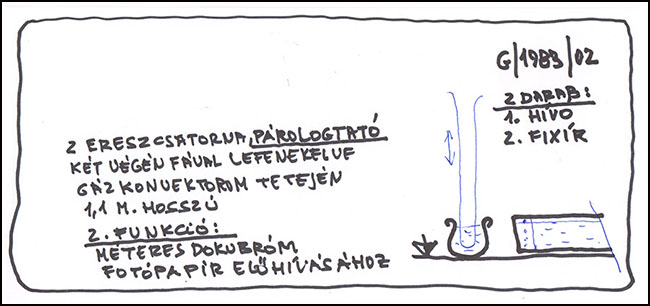 G/1983/02
2 DARAB:
1. HÍVO
2. FIXÍR
2 ERESZCSATORNA PÁROLOGTATÓ
KÉT VÉGÉN FÁVAL LEFENEKELVE
GÁZ KONVEKTOROM TETEJÉN
1,1 M. HOSSZÚ
2. FUNKCIÓ:
MÉTERES DOKUBRÓM
FOTÓPAPÍR ELŐHÍVÁSÁHOZ